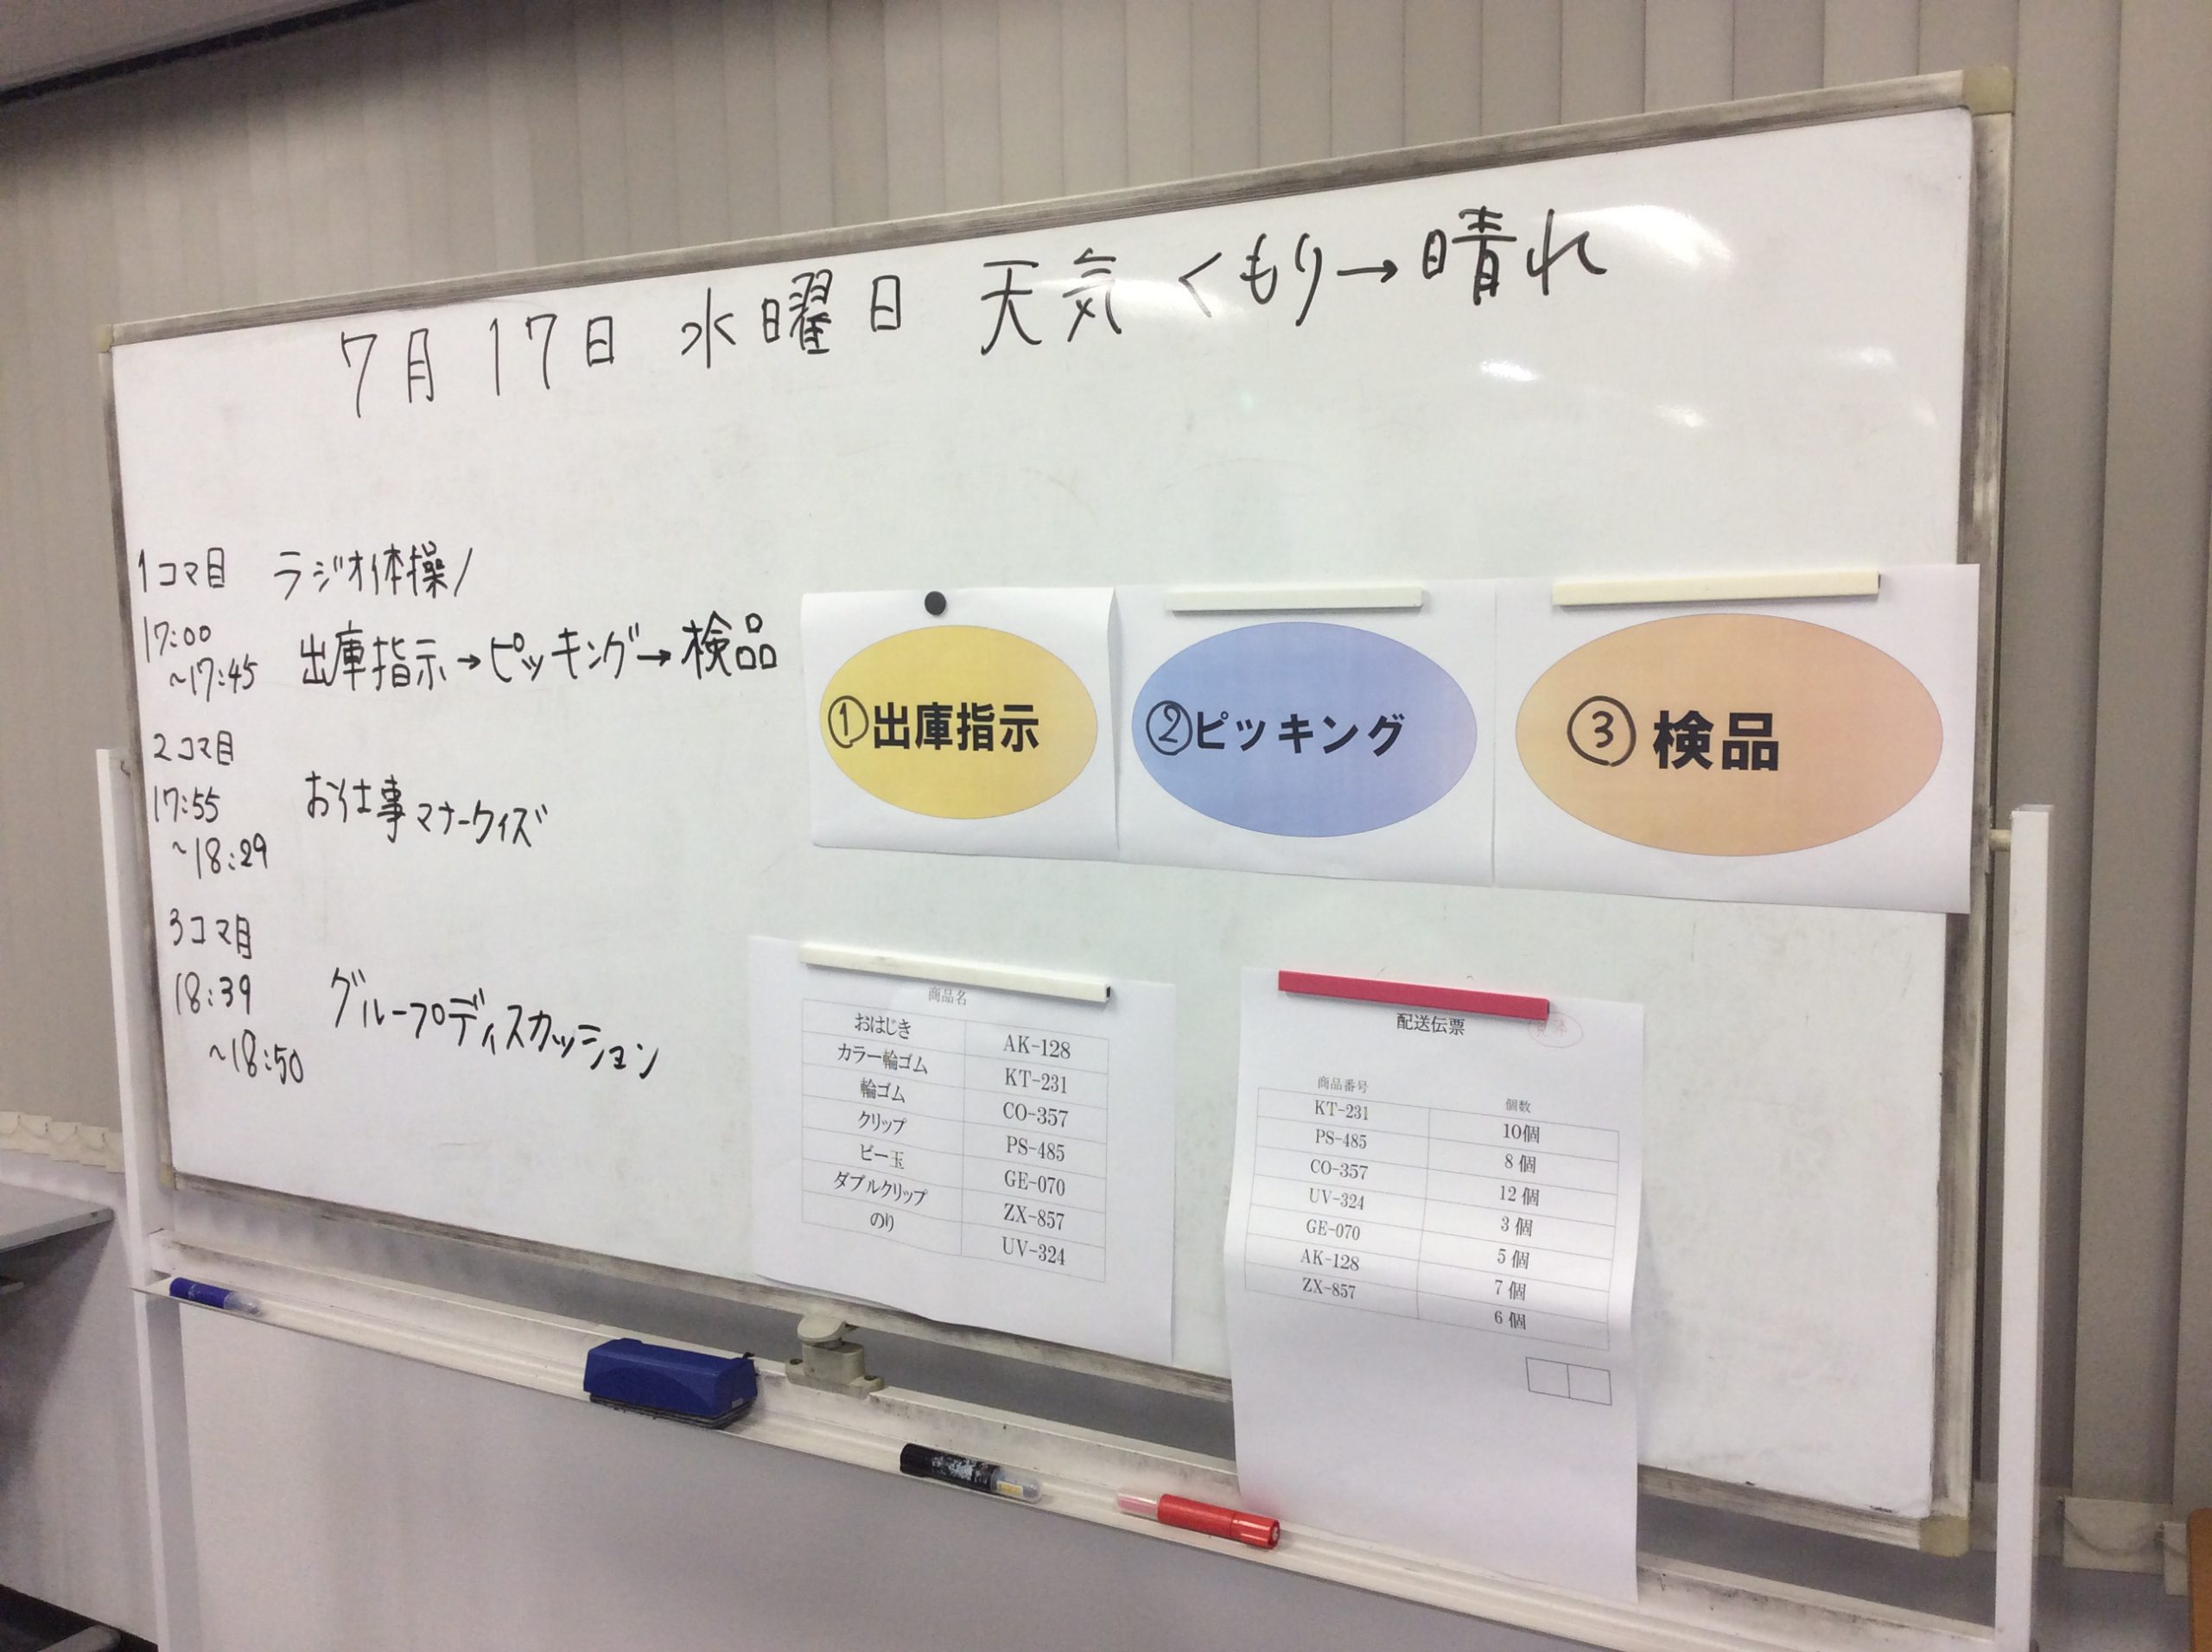 7月17日 水曜日 天気 くもり→晴れ
1コマ目 ラジオ体操/
17:00
~17:45 出庫指示→ピッキング→検品
2コマ目
17:55 お仕事マナークイズ
~18:29
3コマ目
18:39 グループディスカッション
~18:50
①出庫指示
②ピッキング
③検品
商品名
おはじき AK-128
カラー輪ゴム KT-231
輪ゴム CO-357
クリップ PS-485
ビー玉 GE-070
ダブルクリップ ZX-857
のり UV-324
配送伝票
商品番号 個数
KT-231 10個
PS-485 8個
CO-357 12個
UV-324 3個
GE-070 5個
AK-128 7個
ZX-857 6個